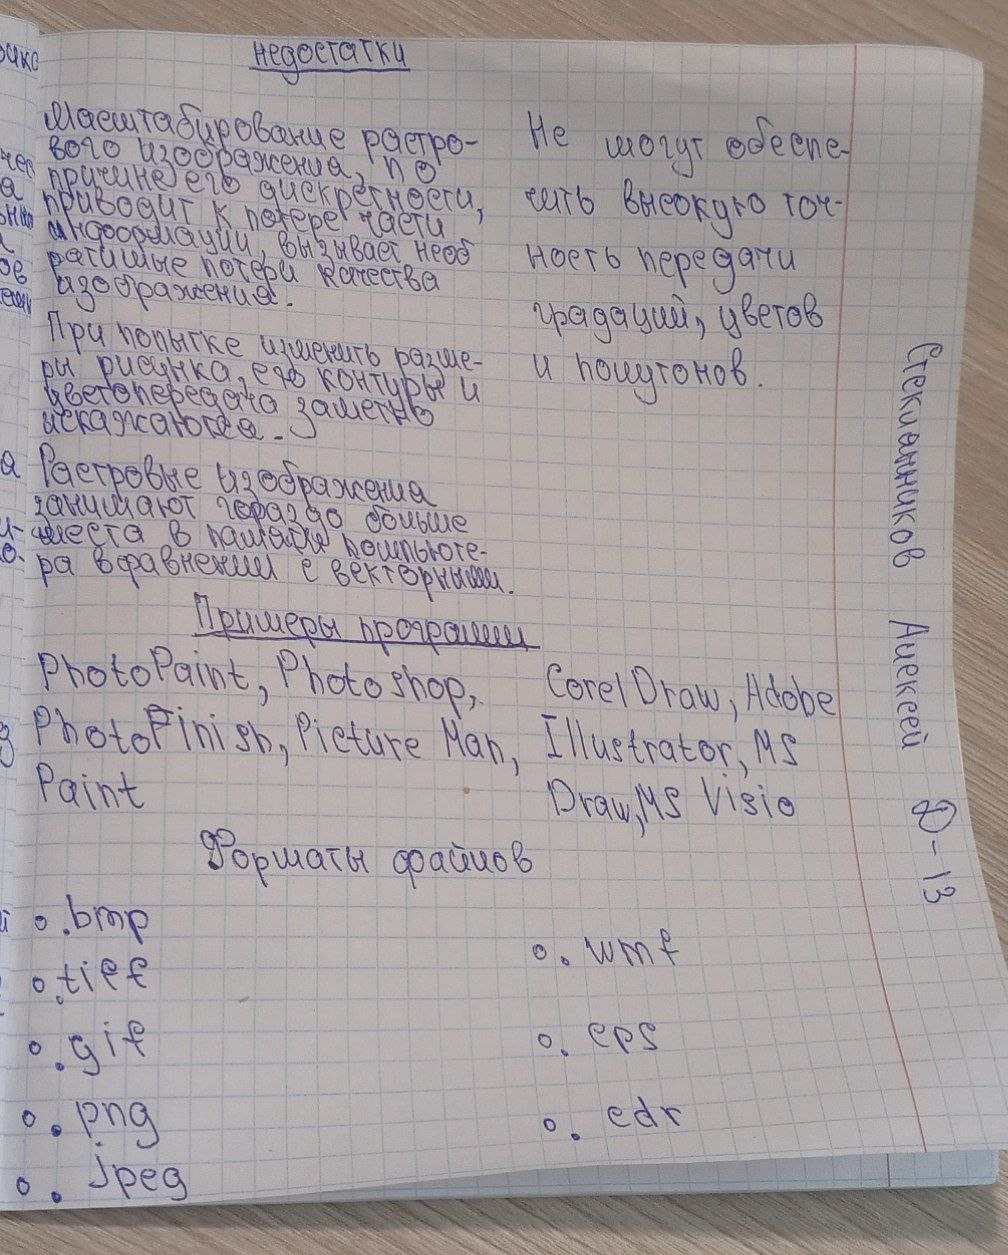 недостатки
Масштабирование растро-
вого изображения, по
причине его дискретности,
приводит к потере части
информации, вызывает необ
ратимые потери качества
изображения.
При попытке изменить разме-
ры рисунка, его контуры и
цветопередача заметно
искажаются.
Растровые изображения
занимают гораздо больше
места в памяти компьюте-
ра в сравнении с векторными.
Не могут обеспе-
чить высокую точ-
ность передачи
градаций, цветов
и полутонов.
Примеры программ
PhotoPaint, Photoshop,
PhotoFinish, Picture Man,
Paint
Corel Draw, Adobe
Illustrator, MS
Draw, MS Visio
Форматы файлов
.bmp
.tiff
.gif
.png
.jpeg
.wmf
.eps
.cdr
Стеклянников Алексей Ф-13